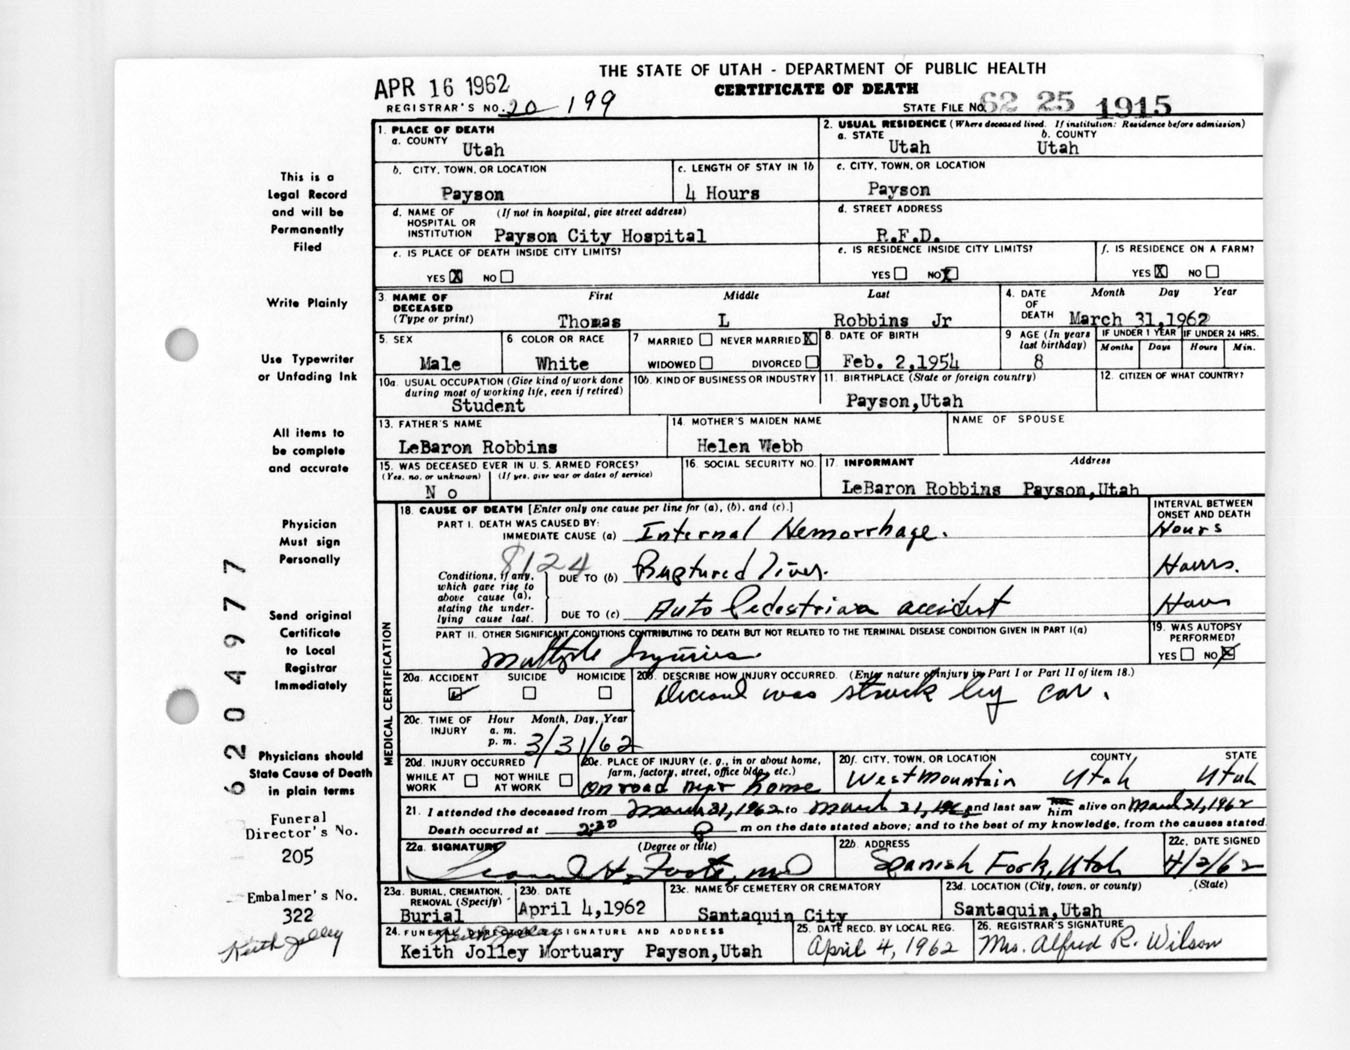 THE STATE OF UTAH - DEPARTMENT OF PUBLIC HEALTH
APR 16 1962
CERTIFICATE OF DEATH
REGISTRAR'S NO. 20 199
STATE FILE NO. 62 25 1915
1. PLACE OF DEATH
a. COUNTY Utah
2. USUAL RESIDENCE (Where deceased lived. If institution: Residence before admission)
a. STATE Utah b. COUNTY Utah
b. CITY, TOWN, OR LOCATION Payson
c. LENGTH OF STAY IN 1b 4 Hours
c. CITY, TOWN, OR LOCATION Payson
d. NAME OF HOSPITAL OR INSTITUTION (If not in hospital, give street address) Payson City Hospital
d. STREET ADDRESS R.F.D.
e. IS PLACE OF DEATH INSIDE CITY LIMITS? YES X NO
e. IS RESIDENCE INSIDE CITY LIMITS? YES NO X
f. IS RESIDENCE ON A FARM? YES X NO
3. NAME OF DECEASED (Type or print) First Middle Last
Thomas L Robbins Jr
4. DATE OF DEATH Month Day Year
March 31,1962
5. SEX Male
6 COLOR OR RACE White
7 MARRIED NEVER MARRIED X WIDOWED DIVORCED
8. DATE OF BIRTH Feb. 2,1954
9 AGE (In years last birthday) 8
IF UNDER 1 YEAR Months Days
IF UNDER 24 HRS. Hours Min.
10a. USUAL OCCUPATION (Give kind of work done during most of working life, even if retired) Student
10b. KIND OF BUSINESS OR INDUSTRY
11. BIRTHPLACE (State or foreign country) Payson,Utah
12. CITIZEN OF WHAT COUNTRY?
13. FATHER'S NAME LeBaron Robbins
14. MOTHER'S MAIDEN NAME Helen Webb
NAME OF SPOUSE
15. WAS DECEASED EVER IN U.S. ARMED FORCES? (Yes, no, or unknown) (If yes, give war or dates of service) No
16. SOCIAL SECURITY NO.
17. INFORMANT Address
LeBaron Robbins Payson,Utah
18. CAUSE OF DEATH [Enter only one cause per line for (a), (b), and (c).]
INTERVAL BETWEEN ONSET AND DEATH
PART I. DEATH WAS CAUSED BY:
IMMEDIATE CAUSE (a) Internal Hemorrhage. Hours
8124
Conditions, if any, which gave rise to above cause (a), stating the underlying cause last.
DUE TO (b) Ruptured liver. Hours.
DUE TO (c) Auto Pedestrian accident Hours
PART II. OTHER SIGNIFICANT CONDITIONS CONTRIBUTING TO DEATH BUT NOT RELATED TO THE TERMINAL DISEASE CONDITION GIVEN IN PART I(a)
Multiple Injuries.
19. WAS AUTOPSY PERFORMED? YES NO X
MEDICAL CERTIFICATION
20a. ACCIDENT SUICIDE HOMICIDE
20b. DESCRIBE HOW INJURY OCCURRED. (Enter nature of injury in Part I or Part II of item 18.)
Deceased was struck by car.
20c. TIME OF INJURY Hour Month, Day, Year a. m. p. m.
3/31/62
20d. INJURY OCCURRED WHILE AT WORK NOT WHILE AT WORK
20e. PLACE OF INJURY (e. g., in or about home, farm, factory, street, office bldg., etc.)
On road near home
20f. CITY, TOWN, OR LOCATION COUNTY STATE
West Mountain Utah Utah
21. I attended the deceased from March 31, 1962 to March 31, 1962 and last saw him alive on March 31, 1962
Death occurred at 2:30 P m on the date stated above; and to the best of my knowledge, from the causes stated.
22a. SIGNATURE (Degree or title)
22b. ADDRESS Spanish Fork, Utah
22c. DATE SIGNED 4/2/62
23a. BURIAL, CREMATION, REMOVAL (Specify) Burial
23b. DATE April 4,1962
23c. NAME OF CEMETERY OR CREMATORY Santaquin City
23d. LOCATION (City, town, or county) (State) Santaquin,Utah
24. FUNERAL DIRECTOR'S SIGNATURE AND ADDRESS
Keith Jolley
Keith Jolley Mortuary Payson,Utah
25. DATE RECD. BY LOCAL REG. April 4, 1962
26. REGISTRAR'S SIGNATURE Mrs. Alfred R. Wilson
This is a
Legal Record
and will be
Permanently
Filed
Write Plainly
Use Typewriter
or Unfading Ink
All items to
be complete
and accurate
Physician
Must sign
Personally
Send original
Certificate
to Local
Registrar
Immediately
Physicians should
State Cause of Death
in plain terms
Funeral
Director's No.
205
Embalmer's No.
322
Keith Jolley
6204977